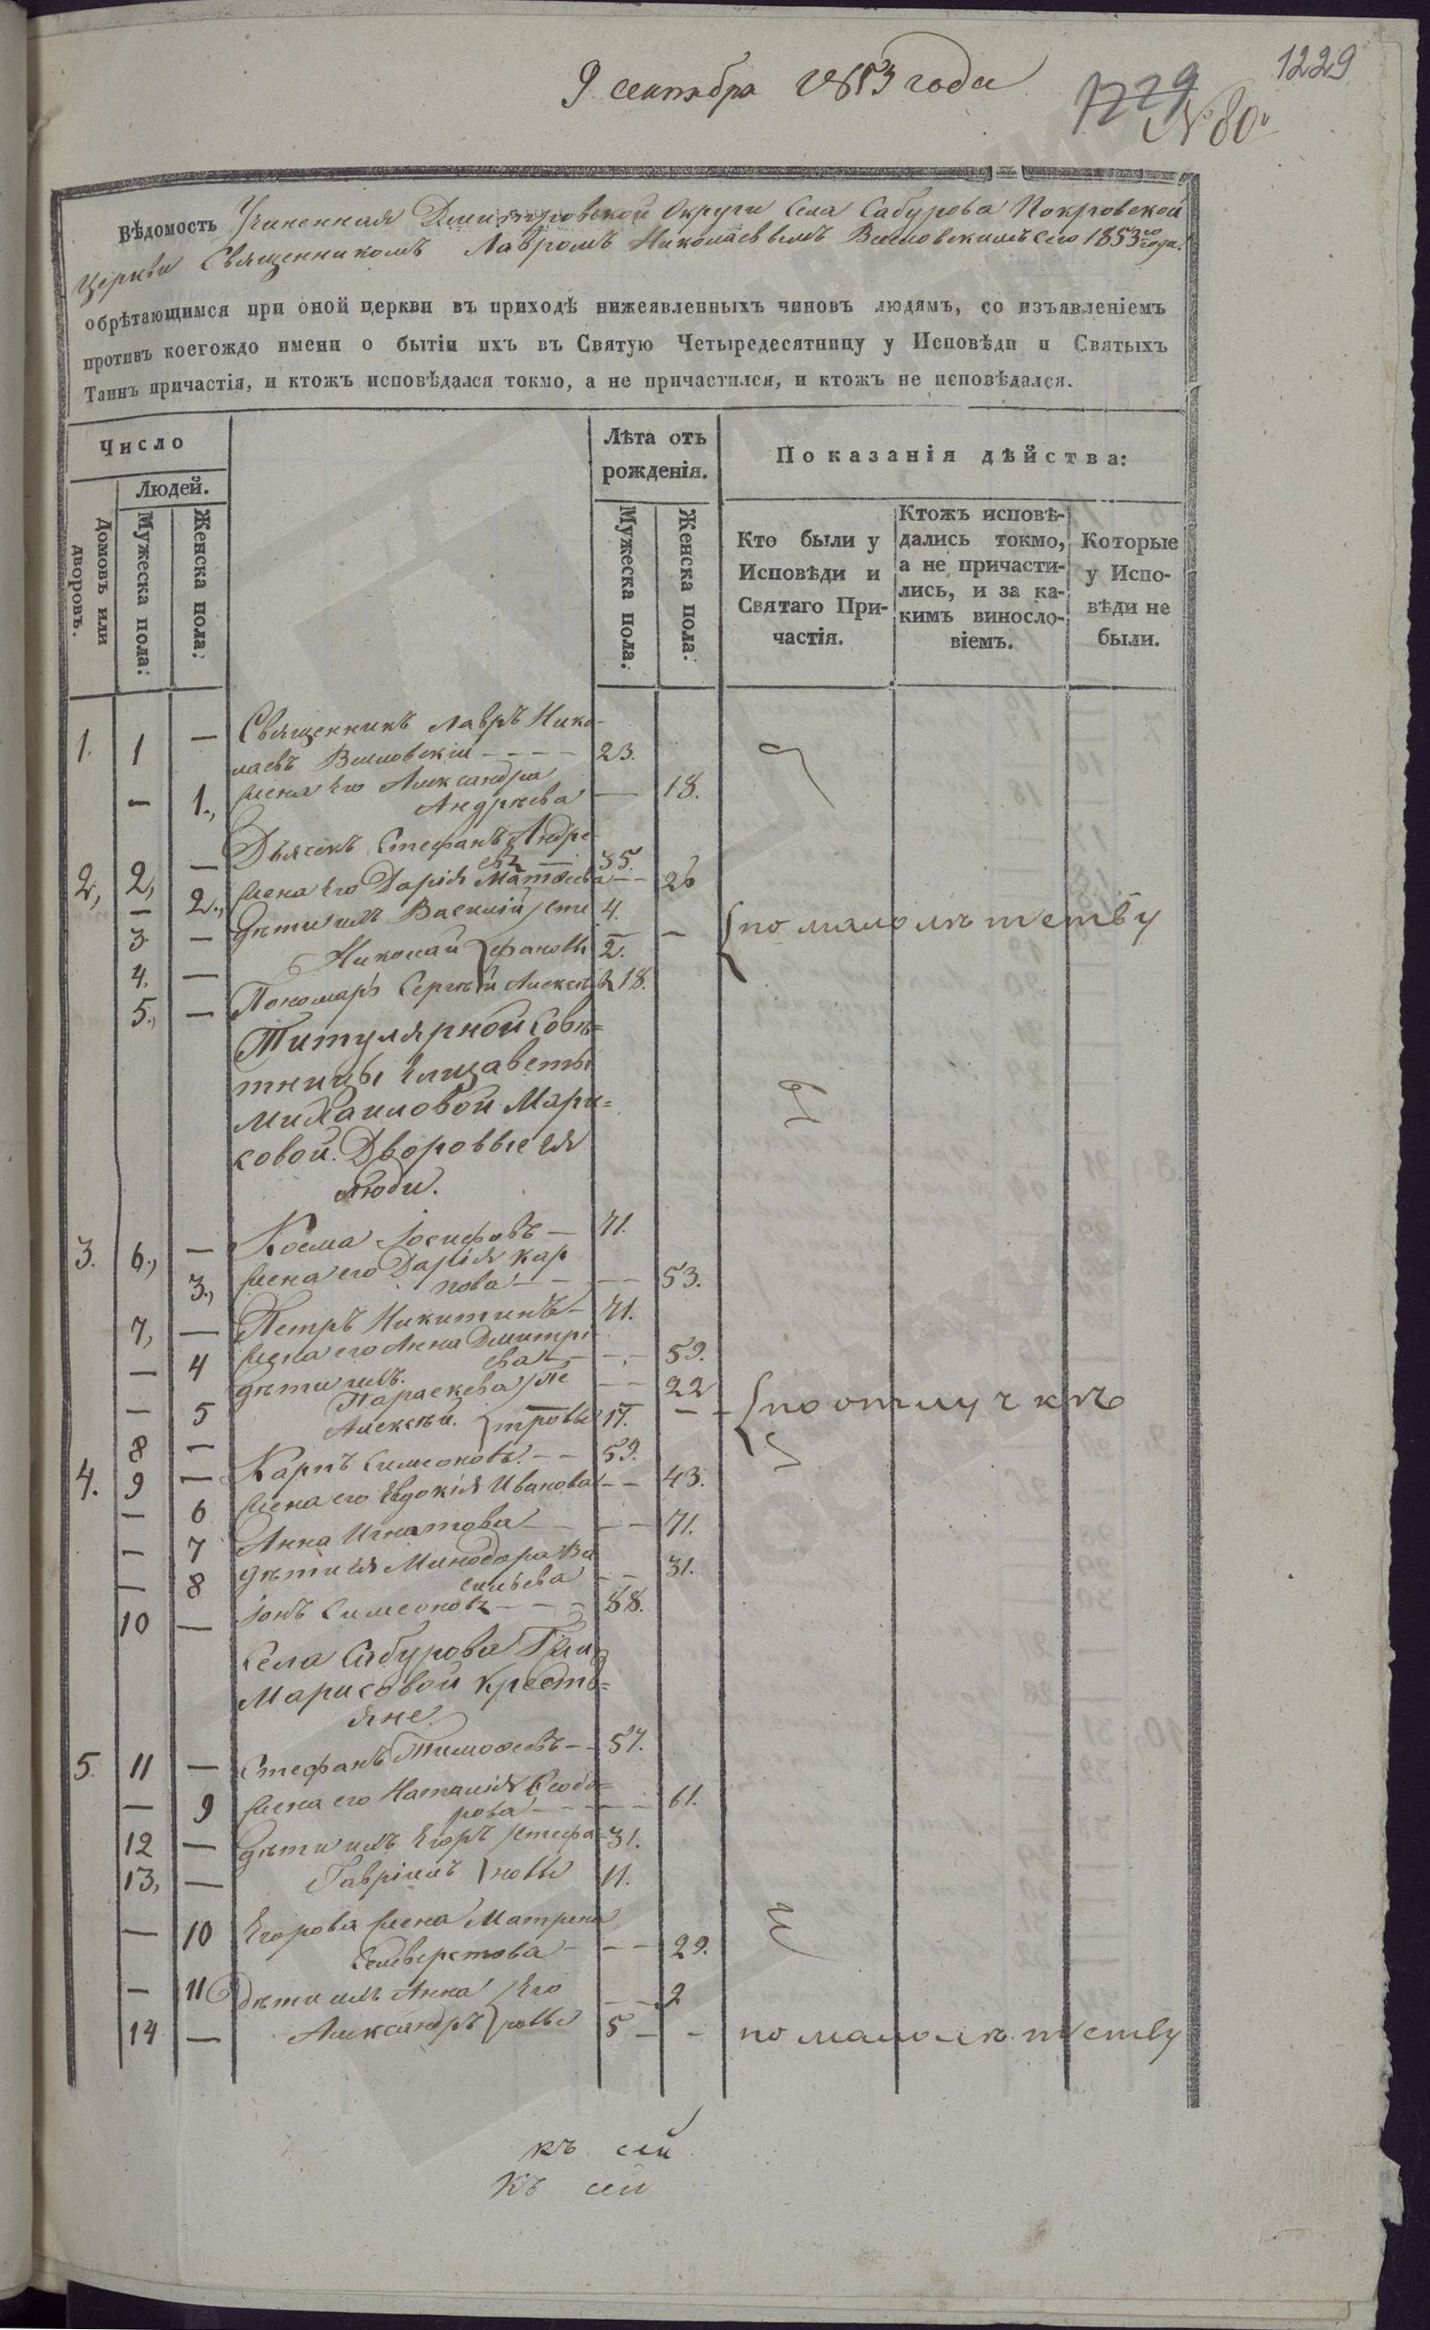 9 сентября 1853 года
1229
1229
№ 80
Вѣдомость Учиненная Дмитровской Округи Села Сабурова Покровской
Церкви Священникомъ Лавромъ Николаевымъ сего 1853го года.
обрѣтающимся при оной церкви въ приходѣ нижеявленныхъ чиновъ людямъ, со изъявленіемъ
противъ коегождо имени о бытіи ихъ въ Святую Четыредесятницу у Исповѣди и Святыхъ
Таинъ причастія, и ктожъ исповѣдался токмо, а не причастился, и ктожъ не исповѣдался.
Число
Людей.
Домовъ или дворовъ.
Мужеска пола.
Женска пола.
Лѣта отъ
рожденія.
Мужеска пола.
Женска пола.
Показанія дѣйства:
Кто были у
Исповѣди и
Святаго При-
частія.
Ктожъ исповѣ-
дались токмо,
а не причасти-
лись, и за ка-
кимъ винословіемъ.
Которые
у Испо-
вѣди не
были.
1. 1 — Священникъ Лавръ Нико-
лаевъ — — — — 23.
— 1., жена его Александра
Андреева — 18.
Дьячекъ Стефанъ Андре-
2, 2, — евъ — 35.
— 2., жена его Дарія Матѳеева — — 26
3. — дѣти ихъ Василій Сте 4. —
4. — Николай фановы 2. {по малолѣтству
5., — Пономарь Сергѣй Алексѣевъ 18.
Титулярной Совѣ=
тницы Елизаветы
Михаиловой Мари=
совой. Дворовые ея
люди.
3. 6., — Косма Іосифовъ — 71.
3., жена его Дарія Кар
пова — — — — 53.
7, — Петръ Никитинъ — 71.
— 4 жена его Анна Дмитрі
ева — — — 59.
— 5 дѣти ихъ. Параскева Пе — — 22
8 — Алексѣй. тровы 17. — — {по отлучкѣ
4. 9 — Карпъ Симеоновъ. — — 59.
— 6 жена его Евдокія Иванова — — 43.
— 7 Анна Игнатова — — — 71.
— 8 дѣти ея Минодора Ва
сильева — — 31.
10 — Іонъ Симеоновъ — — — 88.
Села Сабурова Гжи
Марисовой кресть=
яне.
5. 11 — Стефанъ Тимоѳеевъ — — 57.
— 9 жена его Наталія Ѳеодо=
рова — — — — 61.
12 — дѣти ихъ Егоръ Стефа= 31.
13, — Гавріилъ новы 11.
— 10 Егорова жена Матрена
Селиверстова — — — 29.
— 11 дѣти ихъ Анна Его — — 2
14 — Александръ ровы 5 — — по малолѣтству
къ сей
Къ сей